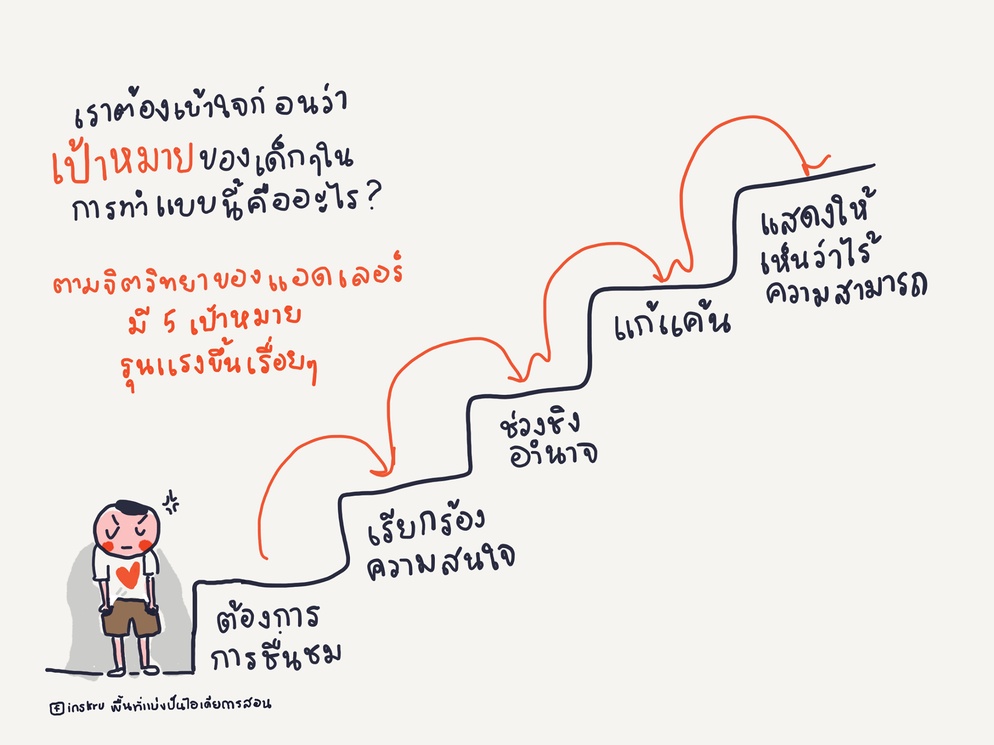 เราต้องเข้าใจก่อนว่า
เป้าหมายของเด็กๆใน
การทำแบบนี้คืออะไร?
ตามจิตวิทยาของแอดเลอร์
มี 5 เป้าหมาย
รุนแรงขึ้นเรื่อยๆ
แสดงให้
เห็นว่าไร้
ความสามารถ
แก้แค้น
ช่วงชิง
อำนาจ
เรียกร้อง
ความสนใจ
ต้องการ
การชื่นชม
inskru พื้นที่แบ่งปันไอเดียการสอน